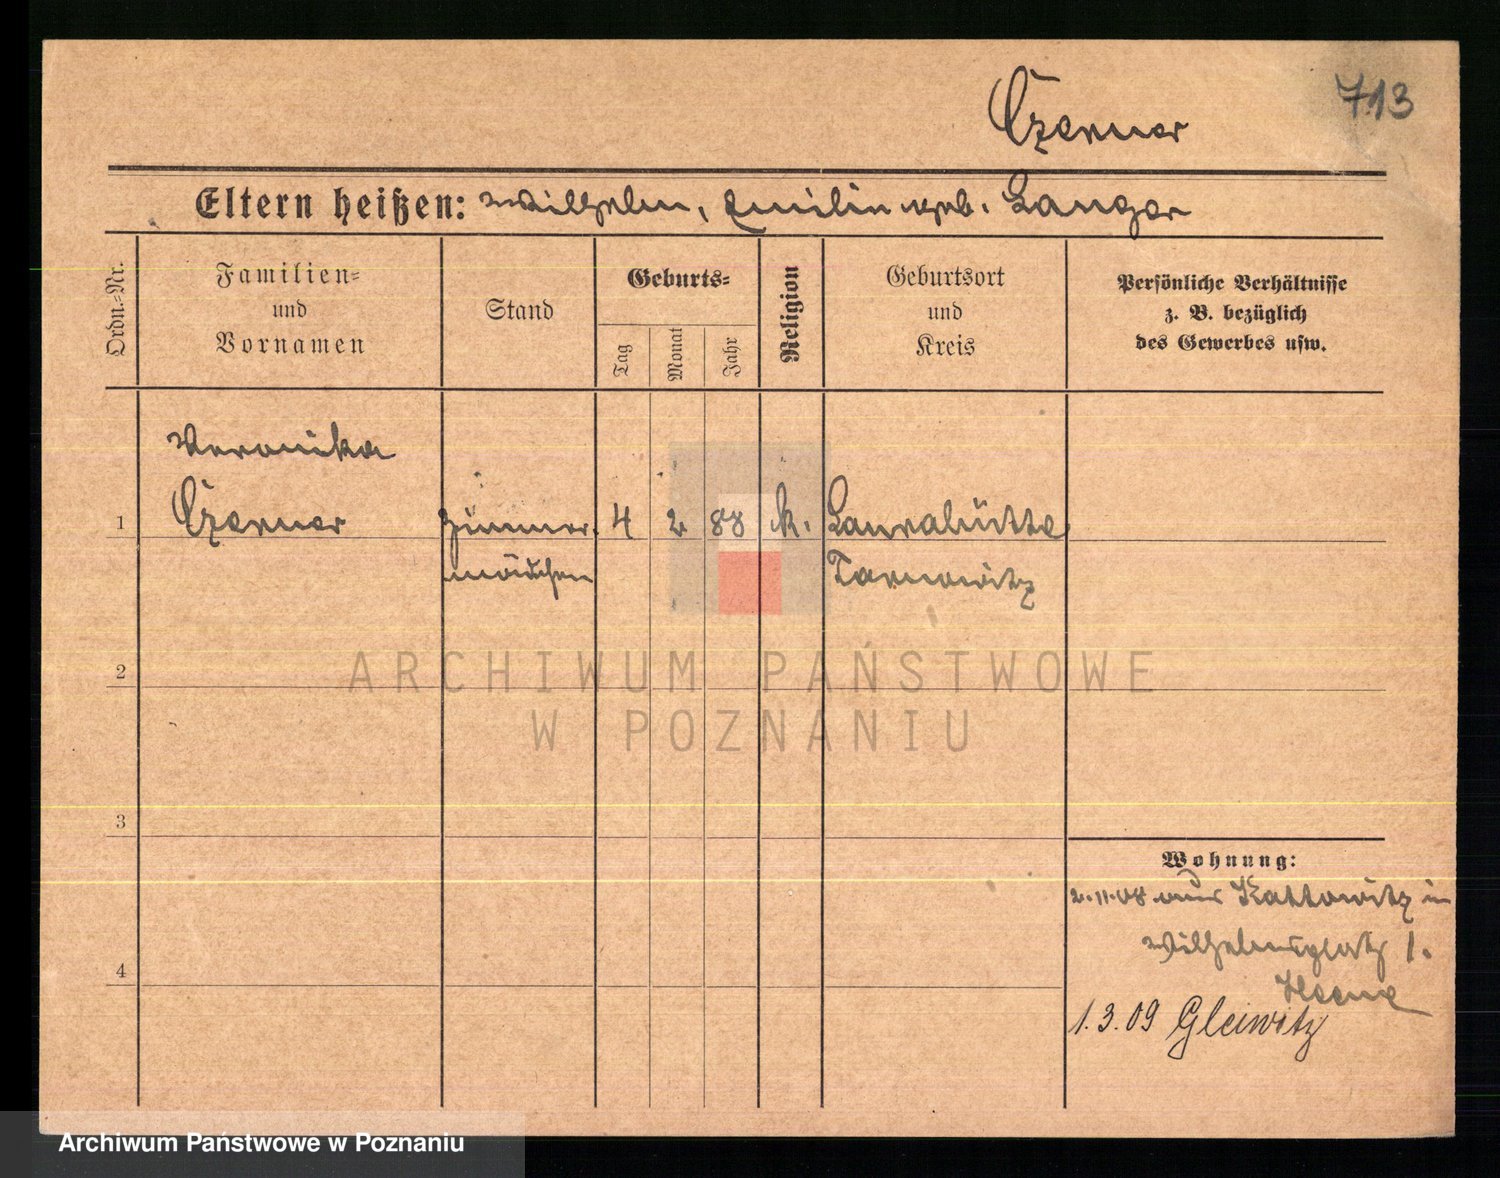 713
Czerner
Eltern heißen: Wilhelm, Emilie geb. Langer
Ordn.-Nr.
Familien-
und
Vornamen
Stand
Geburts-
Tag
Monat
Jahr
Religion
Geburtsort
und
Kreis
Persönliche Verhältnisse
z. B. bezüglich
des Gewerbes usw.
Veronika
1 Czerner Zimmer- 4 2 88 k. Laurahütte
mädchen Tarnowitz
2
ARCHIWUM PAŃSTWOWE
W POZNANIU
3
Wohnung:
2.11.08 aus Kattowitz in
Wilhelmsplatz 1.
4
1.3.09 Gleiwitz
Archiwum Państwowe w Poznaniu